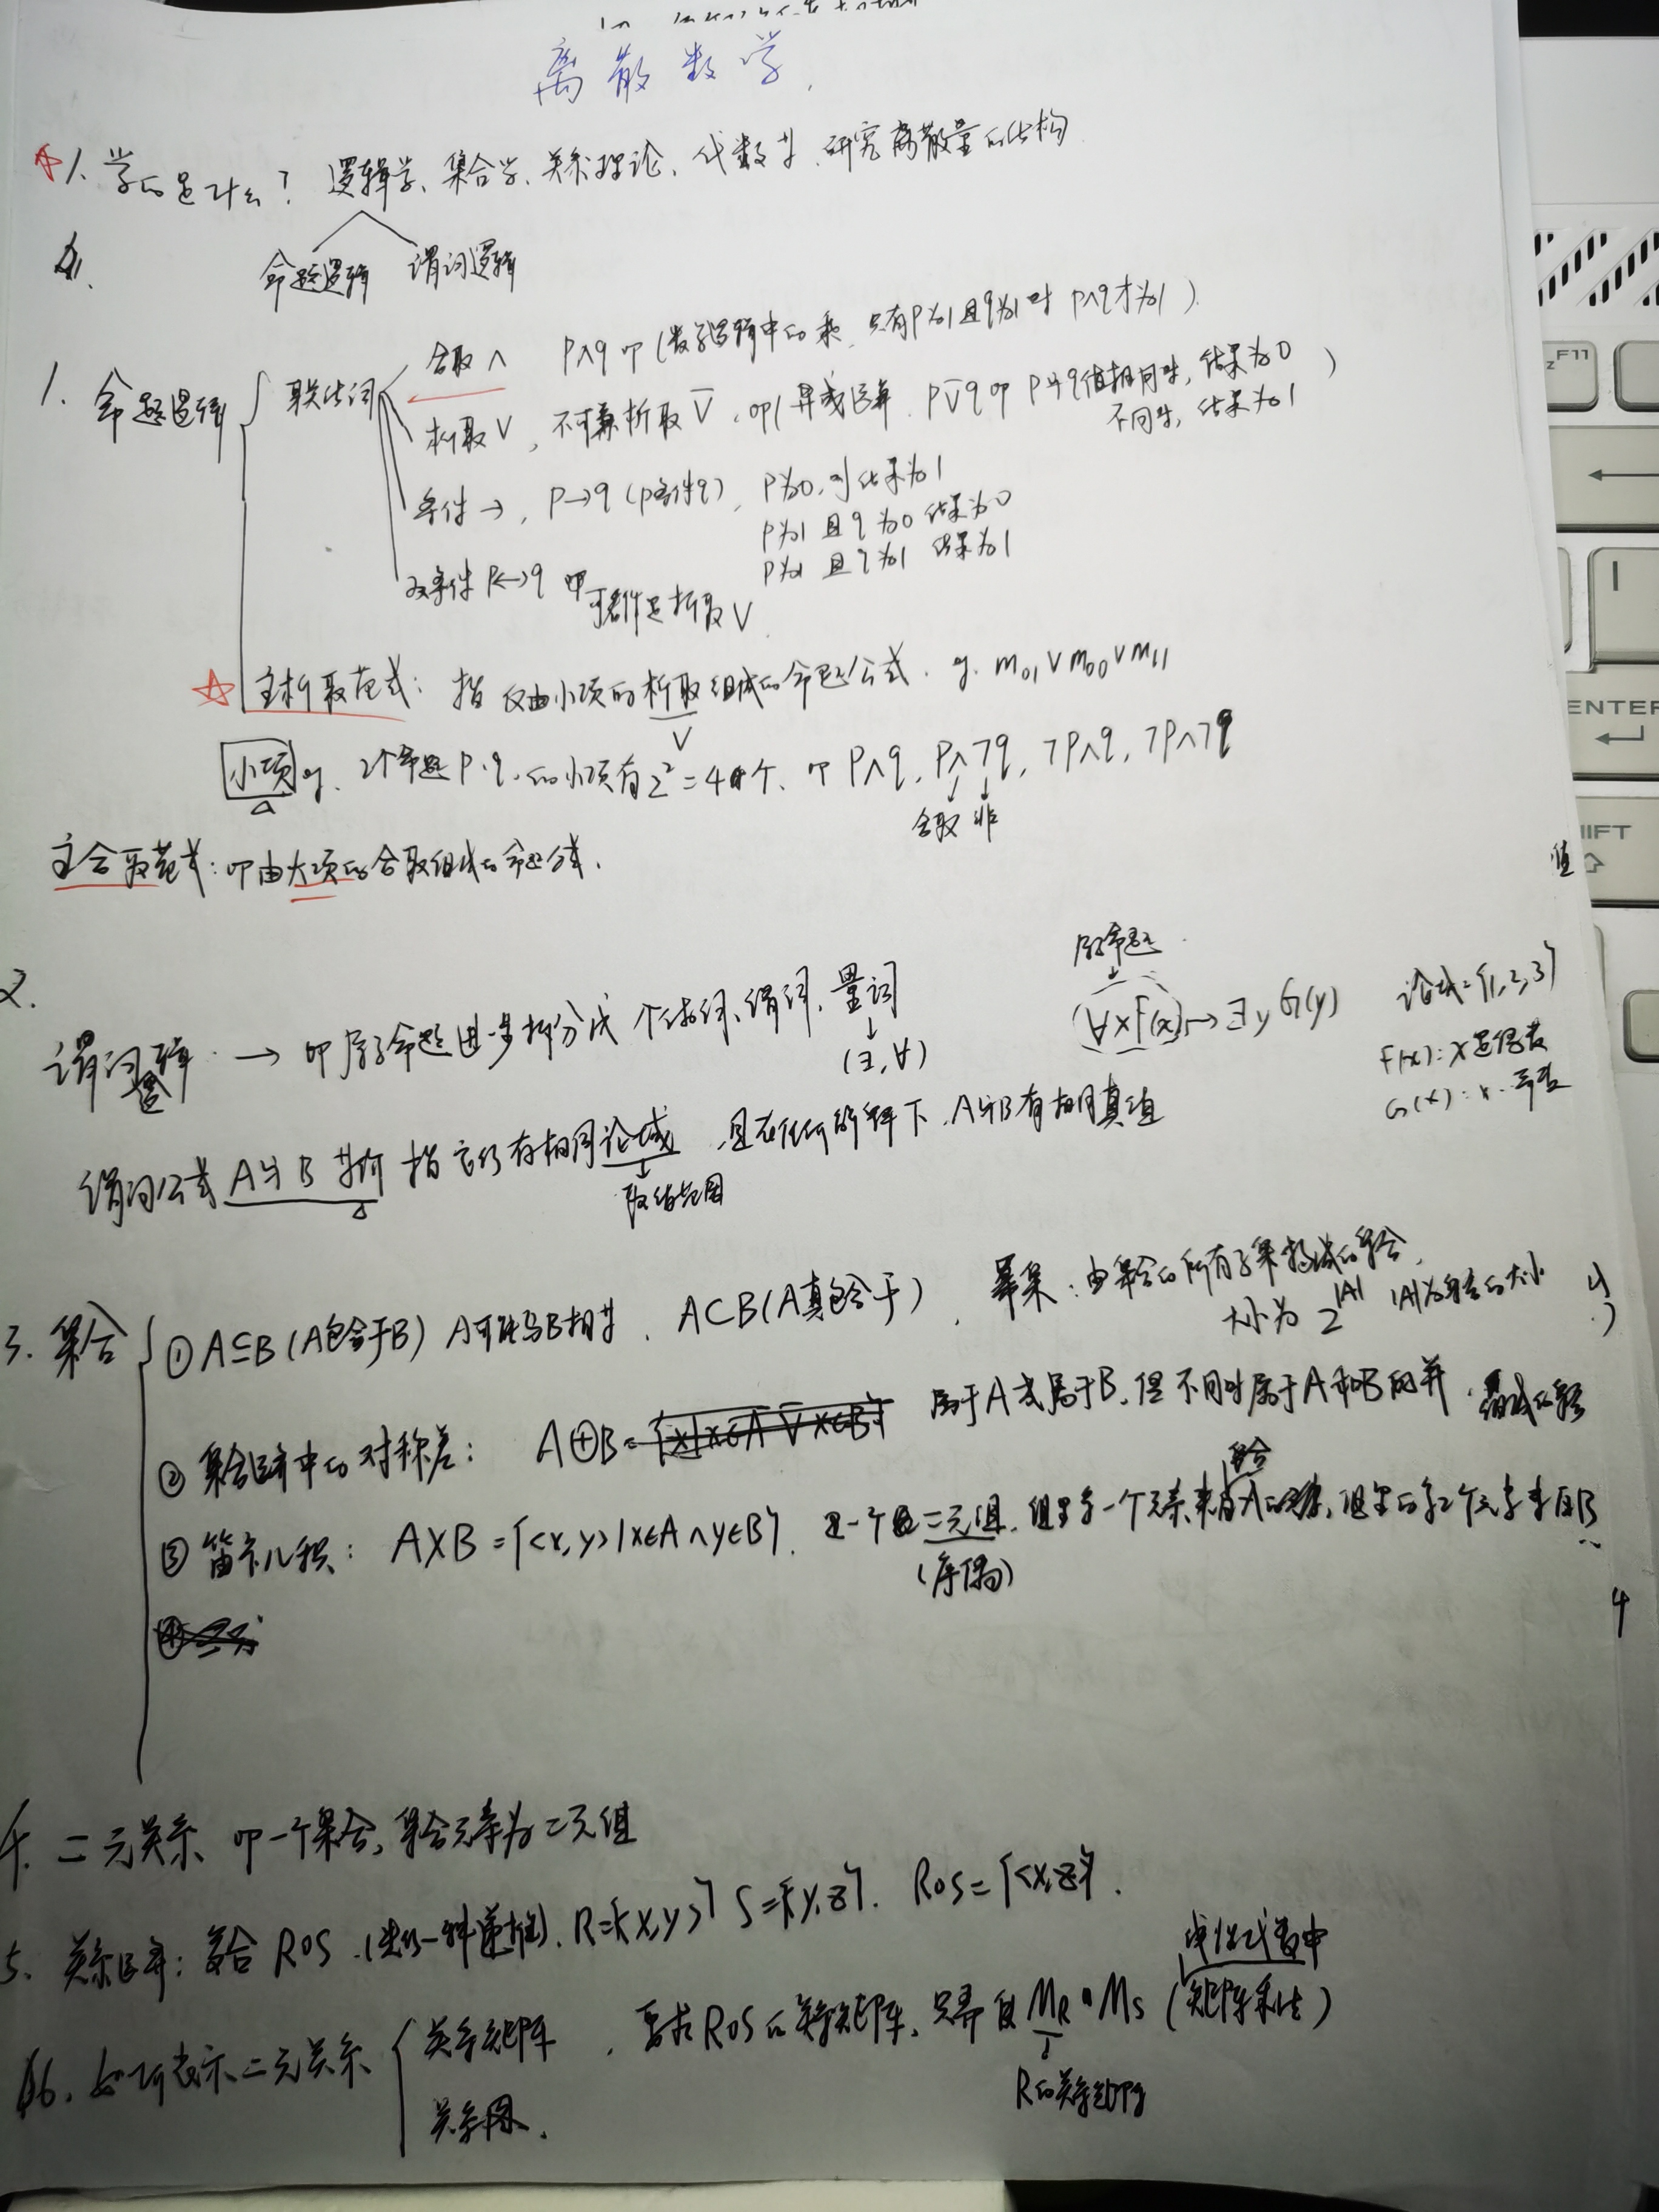 离散数学
1. 学的是什么? 逻辑学、集合学、关系理论、代数等. 研究离散量的结构
命题逻辑 谓词逻辑
1. 命题逻辑
联结词
合取∧ P∧q 即(数字逻辑中的乘, 只有P为1且q为1时 P∧q才为1).
析取∨, 不可兼析取 ⊽, 即异或运算. P⊽q即P与q值相同时, 结果为0
不同时, 结果为1)
条件→, P→q (p条件q), P为0, 则结果为1
P为1且q为0 结果为0
P为1且q为1 结果为1
双条件 P↔q
析取∨
☆主析取范式: 指仅由小项的析取组成的命题公式. eg. m01∨m00∨m11
∨
小项 eg. 2个命题P.q. 的小项有2²=4个. 即 P∧q, P∧¬q, ¬P∧q, ¬P∧¬q
合取 非
主合取范式: 即由大项的合取组成的命题公式.
值
2.
谓词逻辑 → 即原子命题进一步拆分成 个体词、谓词、量词
(∃,∀)
原子命题
(∀xF(x))→∃yG(y)
论域={1,2,3}
F(x): x是偶数
G(x): x
谓词公式 A与B等价 指它们有相同论域, 且在任何解释下, A与B有相同真值
取值范围
3. 集合
① A⊆B (A包含于B) A可能与B相等. A⊂B (A真包含于), 幂集: 由集合的所有子集构成的集合,
大小为 2^|A| |A|为集合的大小
② 集合运算中的对称差: A⊕B= {x|x∈A ⊽ x∈B} 属于A或属于B, 但不同时属于A和B的 组成的集合
③ 笛卡儿积: A×B={<x,y>|x∈A∧y∈B}. 是一个二元组, 组里第一个元素来自集合A, 组里的第2个元素来自B
(序偶)
4
4. 二元关系 即一个集合, 集合元素为二元组
5. 关系运算: 复合 R∘S. R={<x,y>} S={<y,z>}. R∘S={<x,z>}.
6. 如何表示二元关系
关系矩阵, 要求R∘S的关系矩阵, 只需 MR∘MS (线性代数中矩阵乘法)
R的关系矩阵
关系图.
ENTER
F11